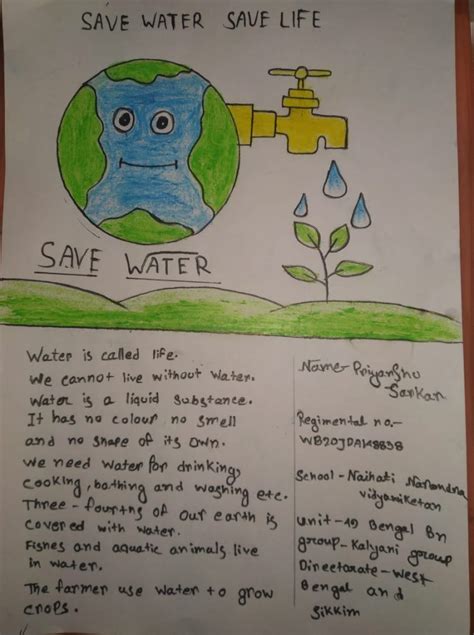 SAVE WATER SAVE LIFE
SAVE WATER
Water is called life.
We cannot live without water.
Water is a liquid substance.
It has no colour no smell
and no shape of its own.
We need water for drinking,
cooking, bathing and washing etc.
Three-fourths of our earth is
covered with water.
Fishes and aquatic animals live
in water.
The farmer use water to grow
crops.
Name- Priyanshu
Sarkar
Regimental no.-
School - Naihati Narendra
vidyaniketan
Unit-19 Bengal Bn
group-Kalyani group
Directorate-West
Bengal and
Sikkim